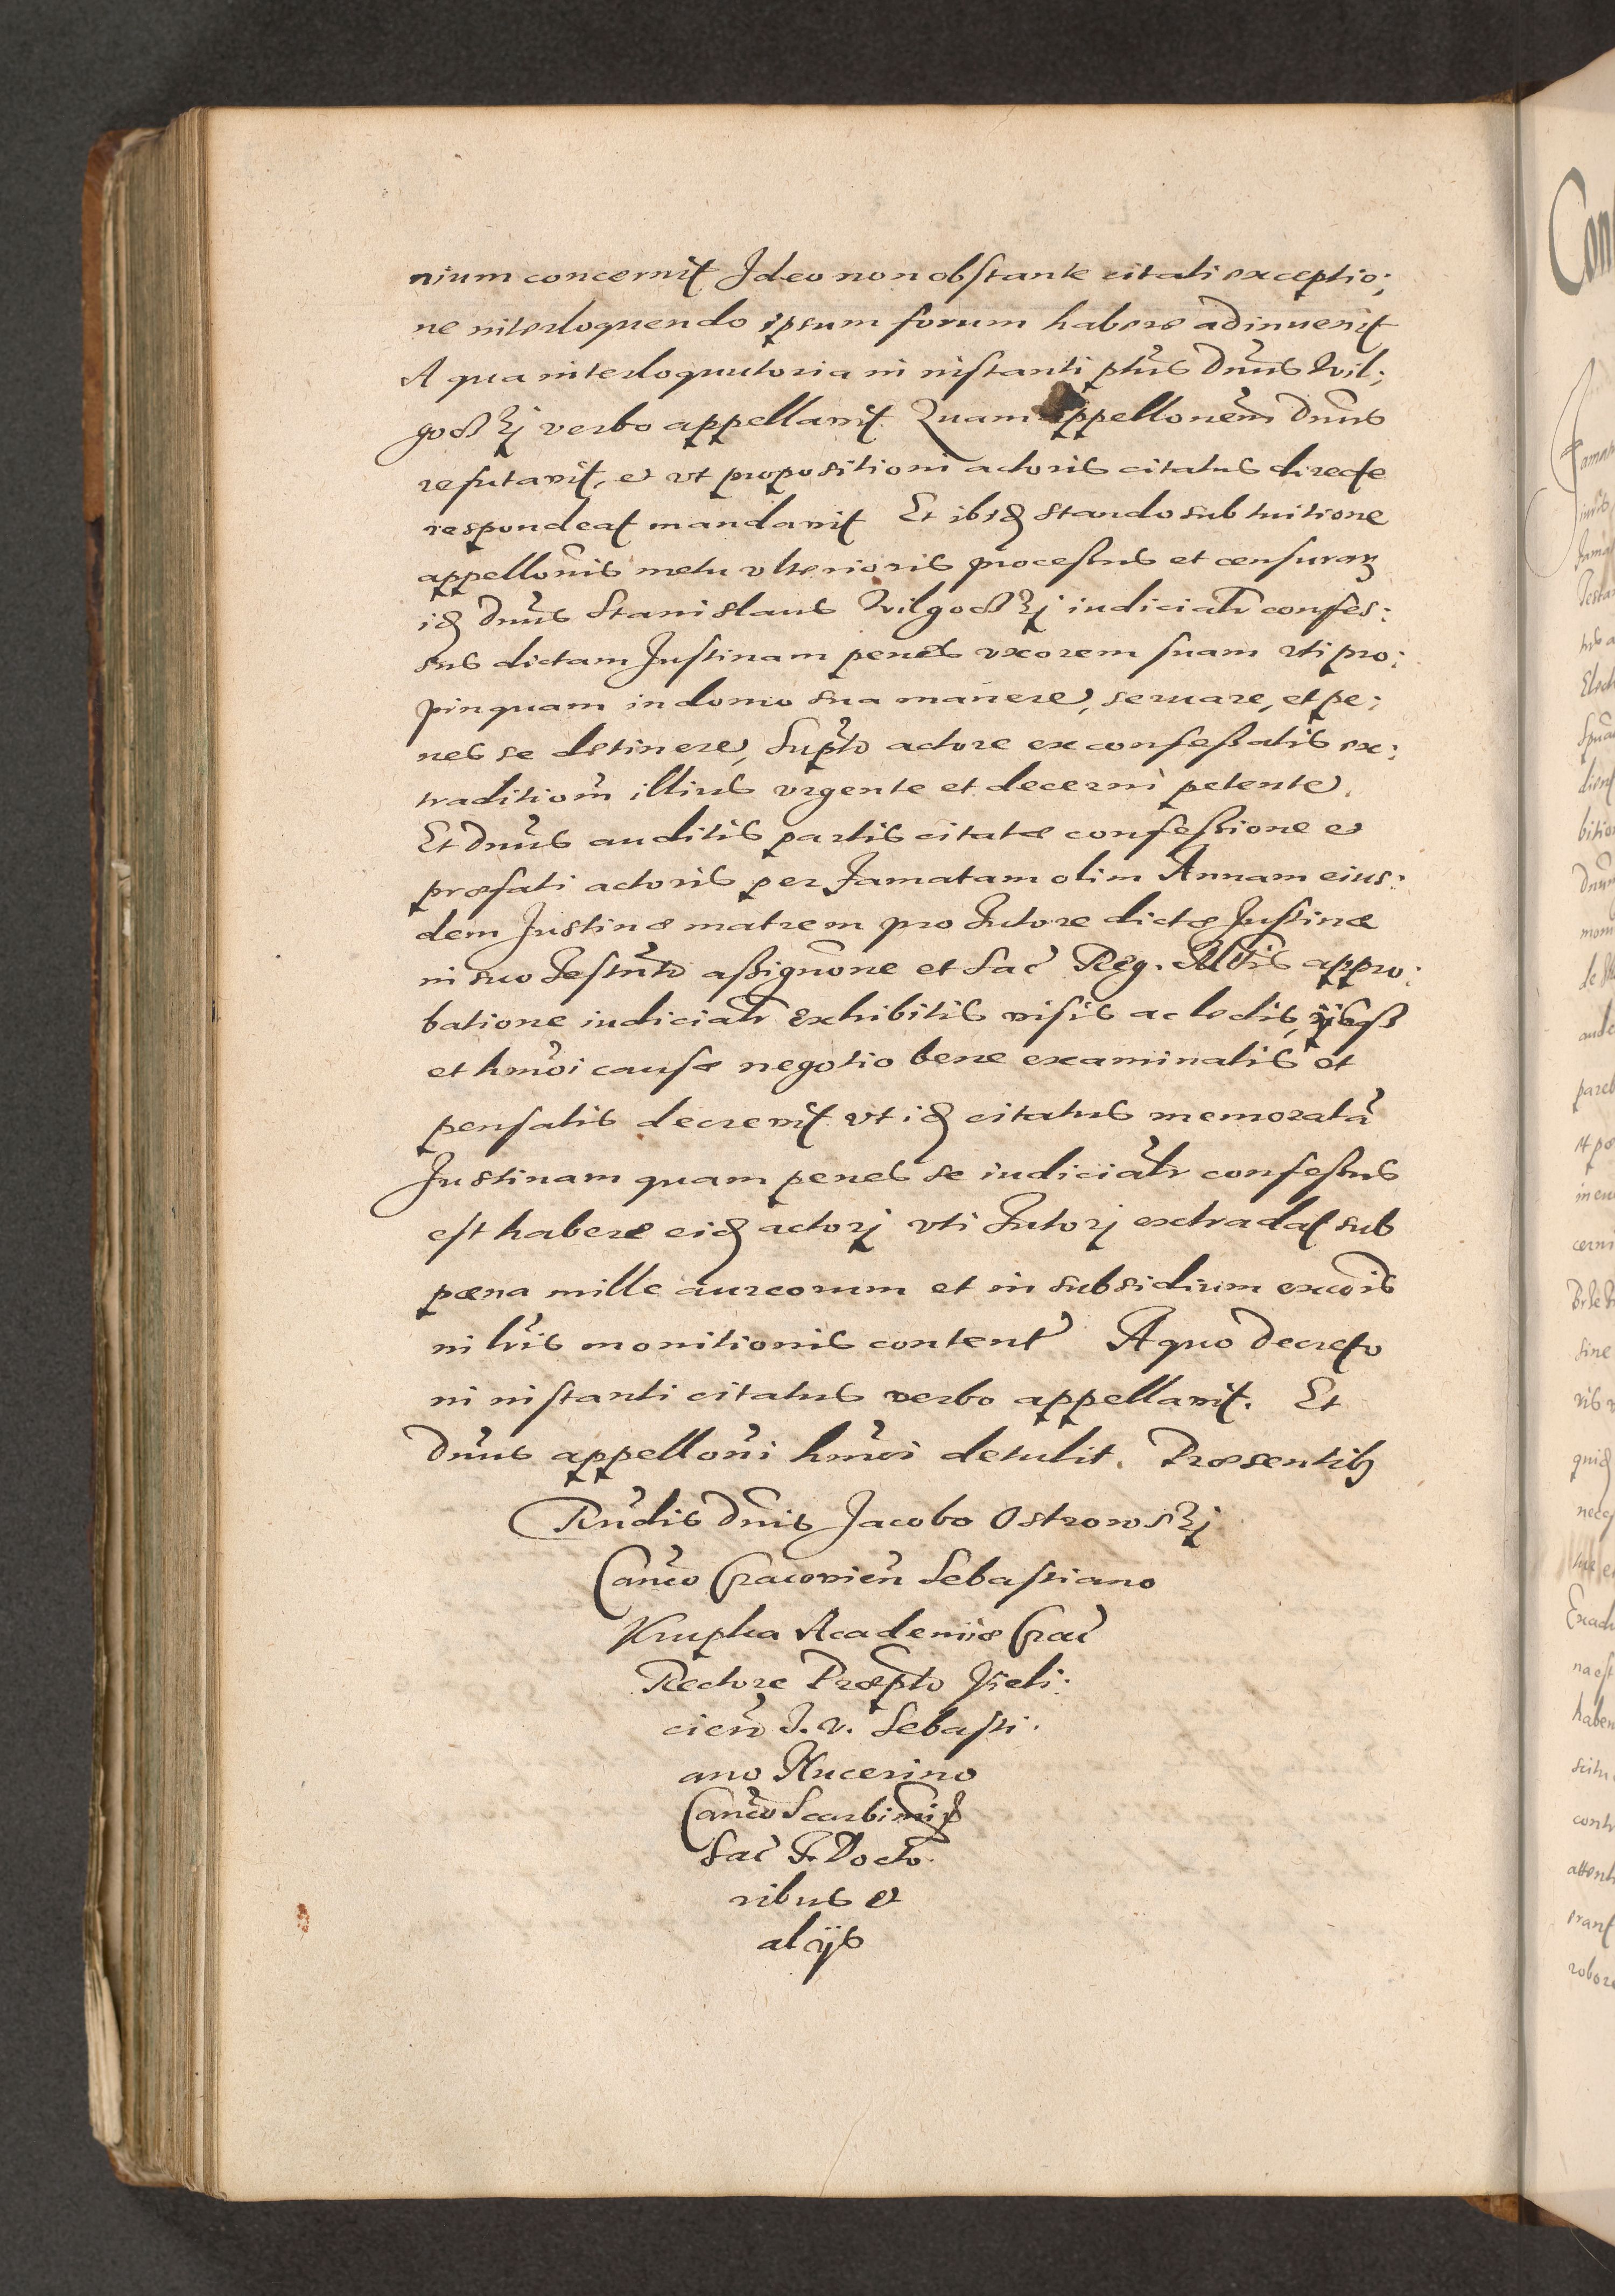 nium concernit Ideo non obstante citati exceptio:
ne interloquendo ipsum forum habere adinuenit
A qua interloquutoria in instanti ptus Dnus Wil:
goskj verbo appellavit. Quam appellonem Dnus
refutavit, et vt propositioni actoris citatus directe
respondeat mandavit Et ibid stando sub tuitione
appellonis metu vlterioris processus et censurarz
id Dnus Stanislaus Wilgoskj iudicialr confes:
sus dictam Justinam penes vxorem suam vti pro:
pinquam in domo sua manere, seruare, et pe:
nes se detinere, Supto actore ex confessatis ex:
traditiom illius vrgente et decerni petente.
Et Dnus auditis partis citatæ confessione et
præfati actoris per famatam olim Annam eius:
dem Justinæ matrem pro tutore dictæ Justinæ
in suo Testmto assignone et Sac Reg. Mtis appro:
batione iudicialr exhibitis visis ac lectis, ijsqz
et hmoi causæ negotio bene examinatis et
pensatis decrevit vt id citatus memoratā
Justinam quam penes se iudicialr confessus
est habere eid actorj vti tutorj extradat sub
pœna mille aureorum et in subsidium excois
in lris monitionis content A quo decreto
in instanti citatus verbo appellavit. Et
Dnus appelloni hmoi detulit. Præsentibz
Rndis Dnis Jacobo Ostrowskj
Canco Cracovien Sebastiano
Krupka Academiæ Crac
Rectore Præpto Kieli:
cien J. V. Sebasti:
ano Nucerino
Canco Scarbimir
Sac T. Docto:
ribus et
alijs